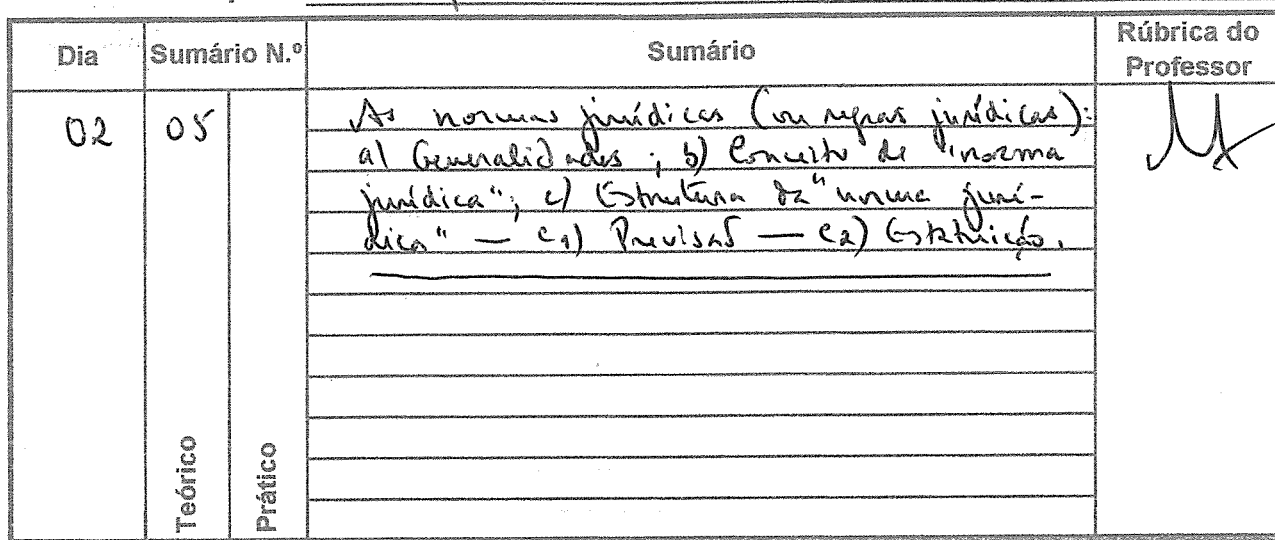 Dia Sumário N.º Sumário Rúbrica do Professor
02 05
As normas jurídicas (ou regras jurídicas):
a) Generalidades; b) Conceito de "norma
jurídica"; c) Estrutura da "norma jurí-
dica" — c1) Previsão — c2) Estatuição.
Teórico
Prático